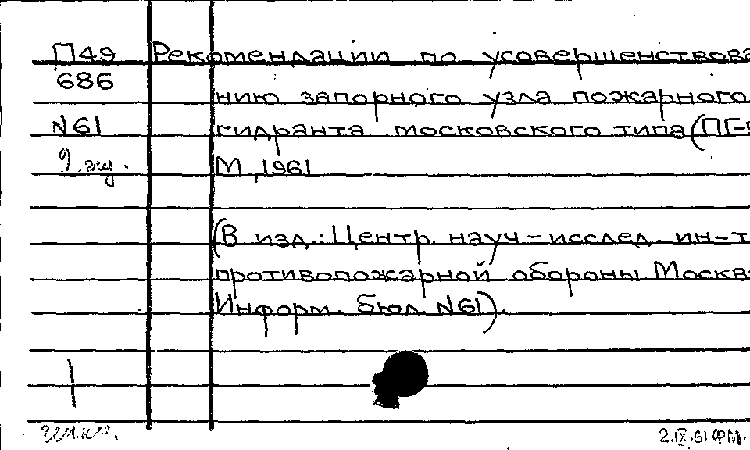 П49 Рекомендации по усовершенствова
686
нию запорного узла пожарного
N61 гидранта московского типа (ПГ-
М., 1961
(В изд.: Центр. науч-исслед. ин-т
противопожарной обороны. Москва
Информ. бюл. N61).
2.IX.61